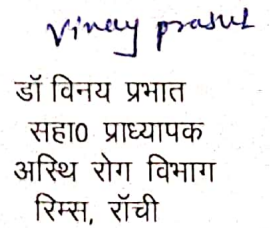 Vinay
डॉ विनय प्रभात
सहा0 प्राध्यापक
अस्थि रोग विभाग
रिम्स, रॉची